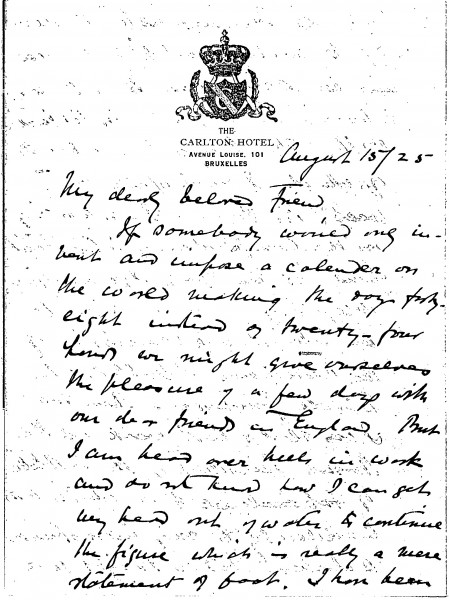 THE
CARLTON HOTEL
AVENUE LOUISE, 101
BRUXELLES
August 15/25
My dearly beloved Friend
If somebody would only in-
vent and impose a calender on
the world making the days forty-
eight instead of twenty-four
hours we might give ourselves
the pleasure of a few days with
our dear friends in England. But
I am head over heels in work
and do not know how I can get
my head out of water to continue
the figure which is really a mere
statement of fact. I have been